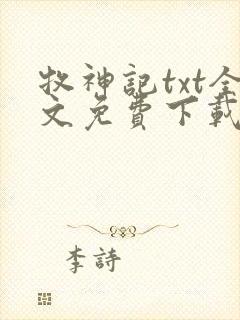 牧神記txt全
文免費下載
李詩